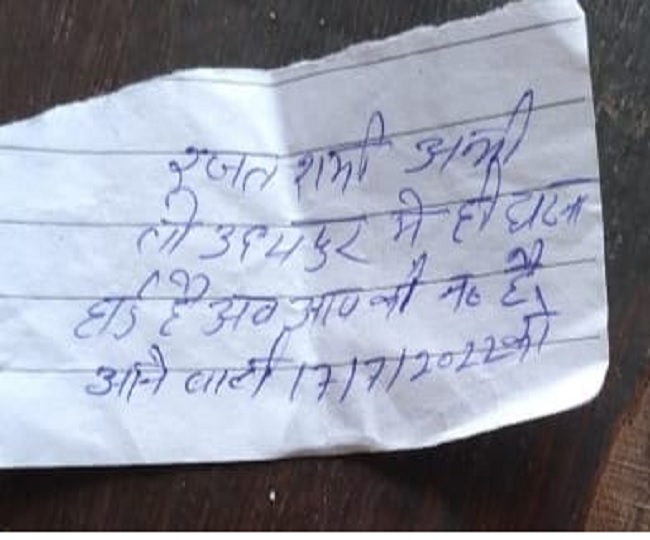 रजत शर्मा अभी
तो उदयपुर मे ही घटना
हाई है अब आप की न० है।
आने वाली 17/7/2022को